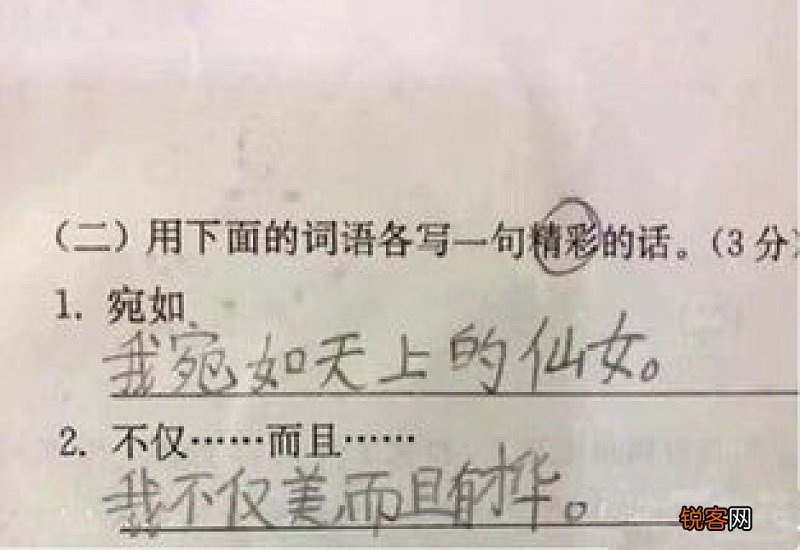 （二）用下面的词语各写一句精彩的话。（3分）
1. 宛如
我宛如天上的仙女。
2. 不仅……而且……
我不仅美而且有才华。
锐客网